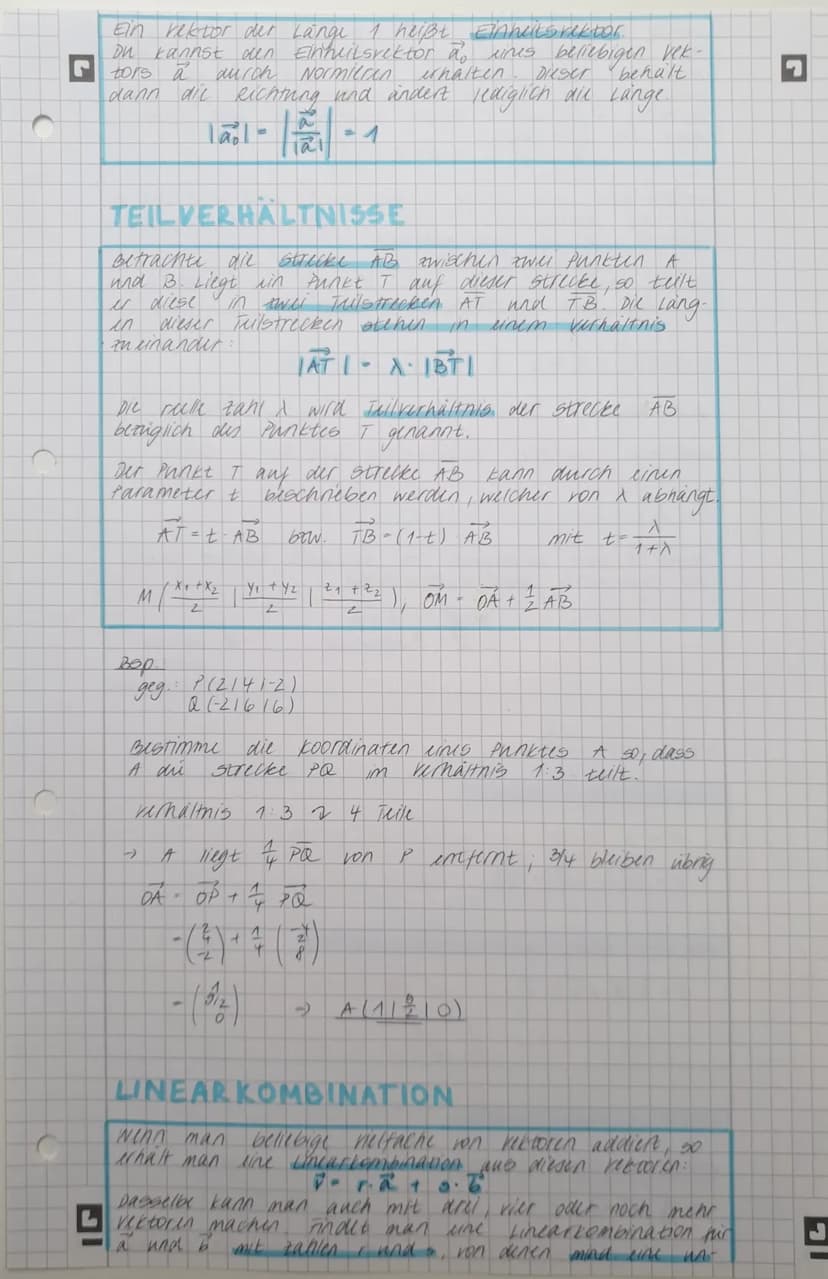 Ein Vektor der Länge 1 heißt Einheitsvektor.
Du kannst den Einheitsvektor a⃗₀ eines beliebigen Vek-
tors a⃗ durch Normieren erhalten. Dieser behält
dann die Richtung und ändert lediglich die Länge.
|a⃗₀| = |a⃗/|a⃗|| = 1
TEILVERHÄLTNISSE
Betrachte die Strecke A̅B̅ zwischen zwei Punkten A
und B. Liegt ein Punkt T auf dieser Strecke, so teilt
er diese in zwei Teilstrecken A̅T̅ und T̅B̅. Die Läng-
en dieser Teilstrecken stehen in einem Verhältnis
zueinander:
|AT⃗| = λ · |BT⃗|
Die reelle Zahl λ wird Teilverhältnis der Strecke A̅B̅
bezüglich des Punktes T genannt.
Der Punkt T auf der Strecke A̅B̅ kann durch einen
Parameter t beschrieben werden, welcher von λ abhängt.
AT⃗ = t · AB⃗ bzw. TB⃗ = (1-t) · AB⃗ mit t = λ/(1+λ)
M((x₁+x₂)/2 | (y₁+y₂)/2 | (z₁+z₂)/2), OM⃗ = OA⃗ + 1/2 AB⃗
Bsp.
geg.: P(2|4|-2)
Q(-2|6|6)
Bestimme die Koordinaten eines Punktes A so, dass
A die Strecke PQ im Verhältnis 1:3 teilt.
Verhältnis 1:3 → 4 Teile
→ A liegt 1/4 P̅Q̅ von P entfernt, 3/4 bleiben übrig
OA⃗ = OP⃗ + 1/4 PQ⃗
= (2 4 -2) + 1/4 (-4 2 8)
= (1 9/2 0) → A(1|9/2|0)
LINEARKOMBINATION
Wenn man beliebige Vielfache von Vektoren addiert, so
erhält man eine Linearkombination aus diesen Vektoren:
v⃗ = r·a⃗ + s·b⃗
Dasselbe kann man auch mit drei, vier oder noch mehr
Vektoren machen. Findet man eine Linearkombination für
a⃗ und b⃗ mit Zahlen r und s, von denen mind eine un-